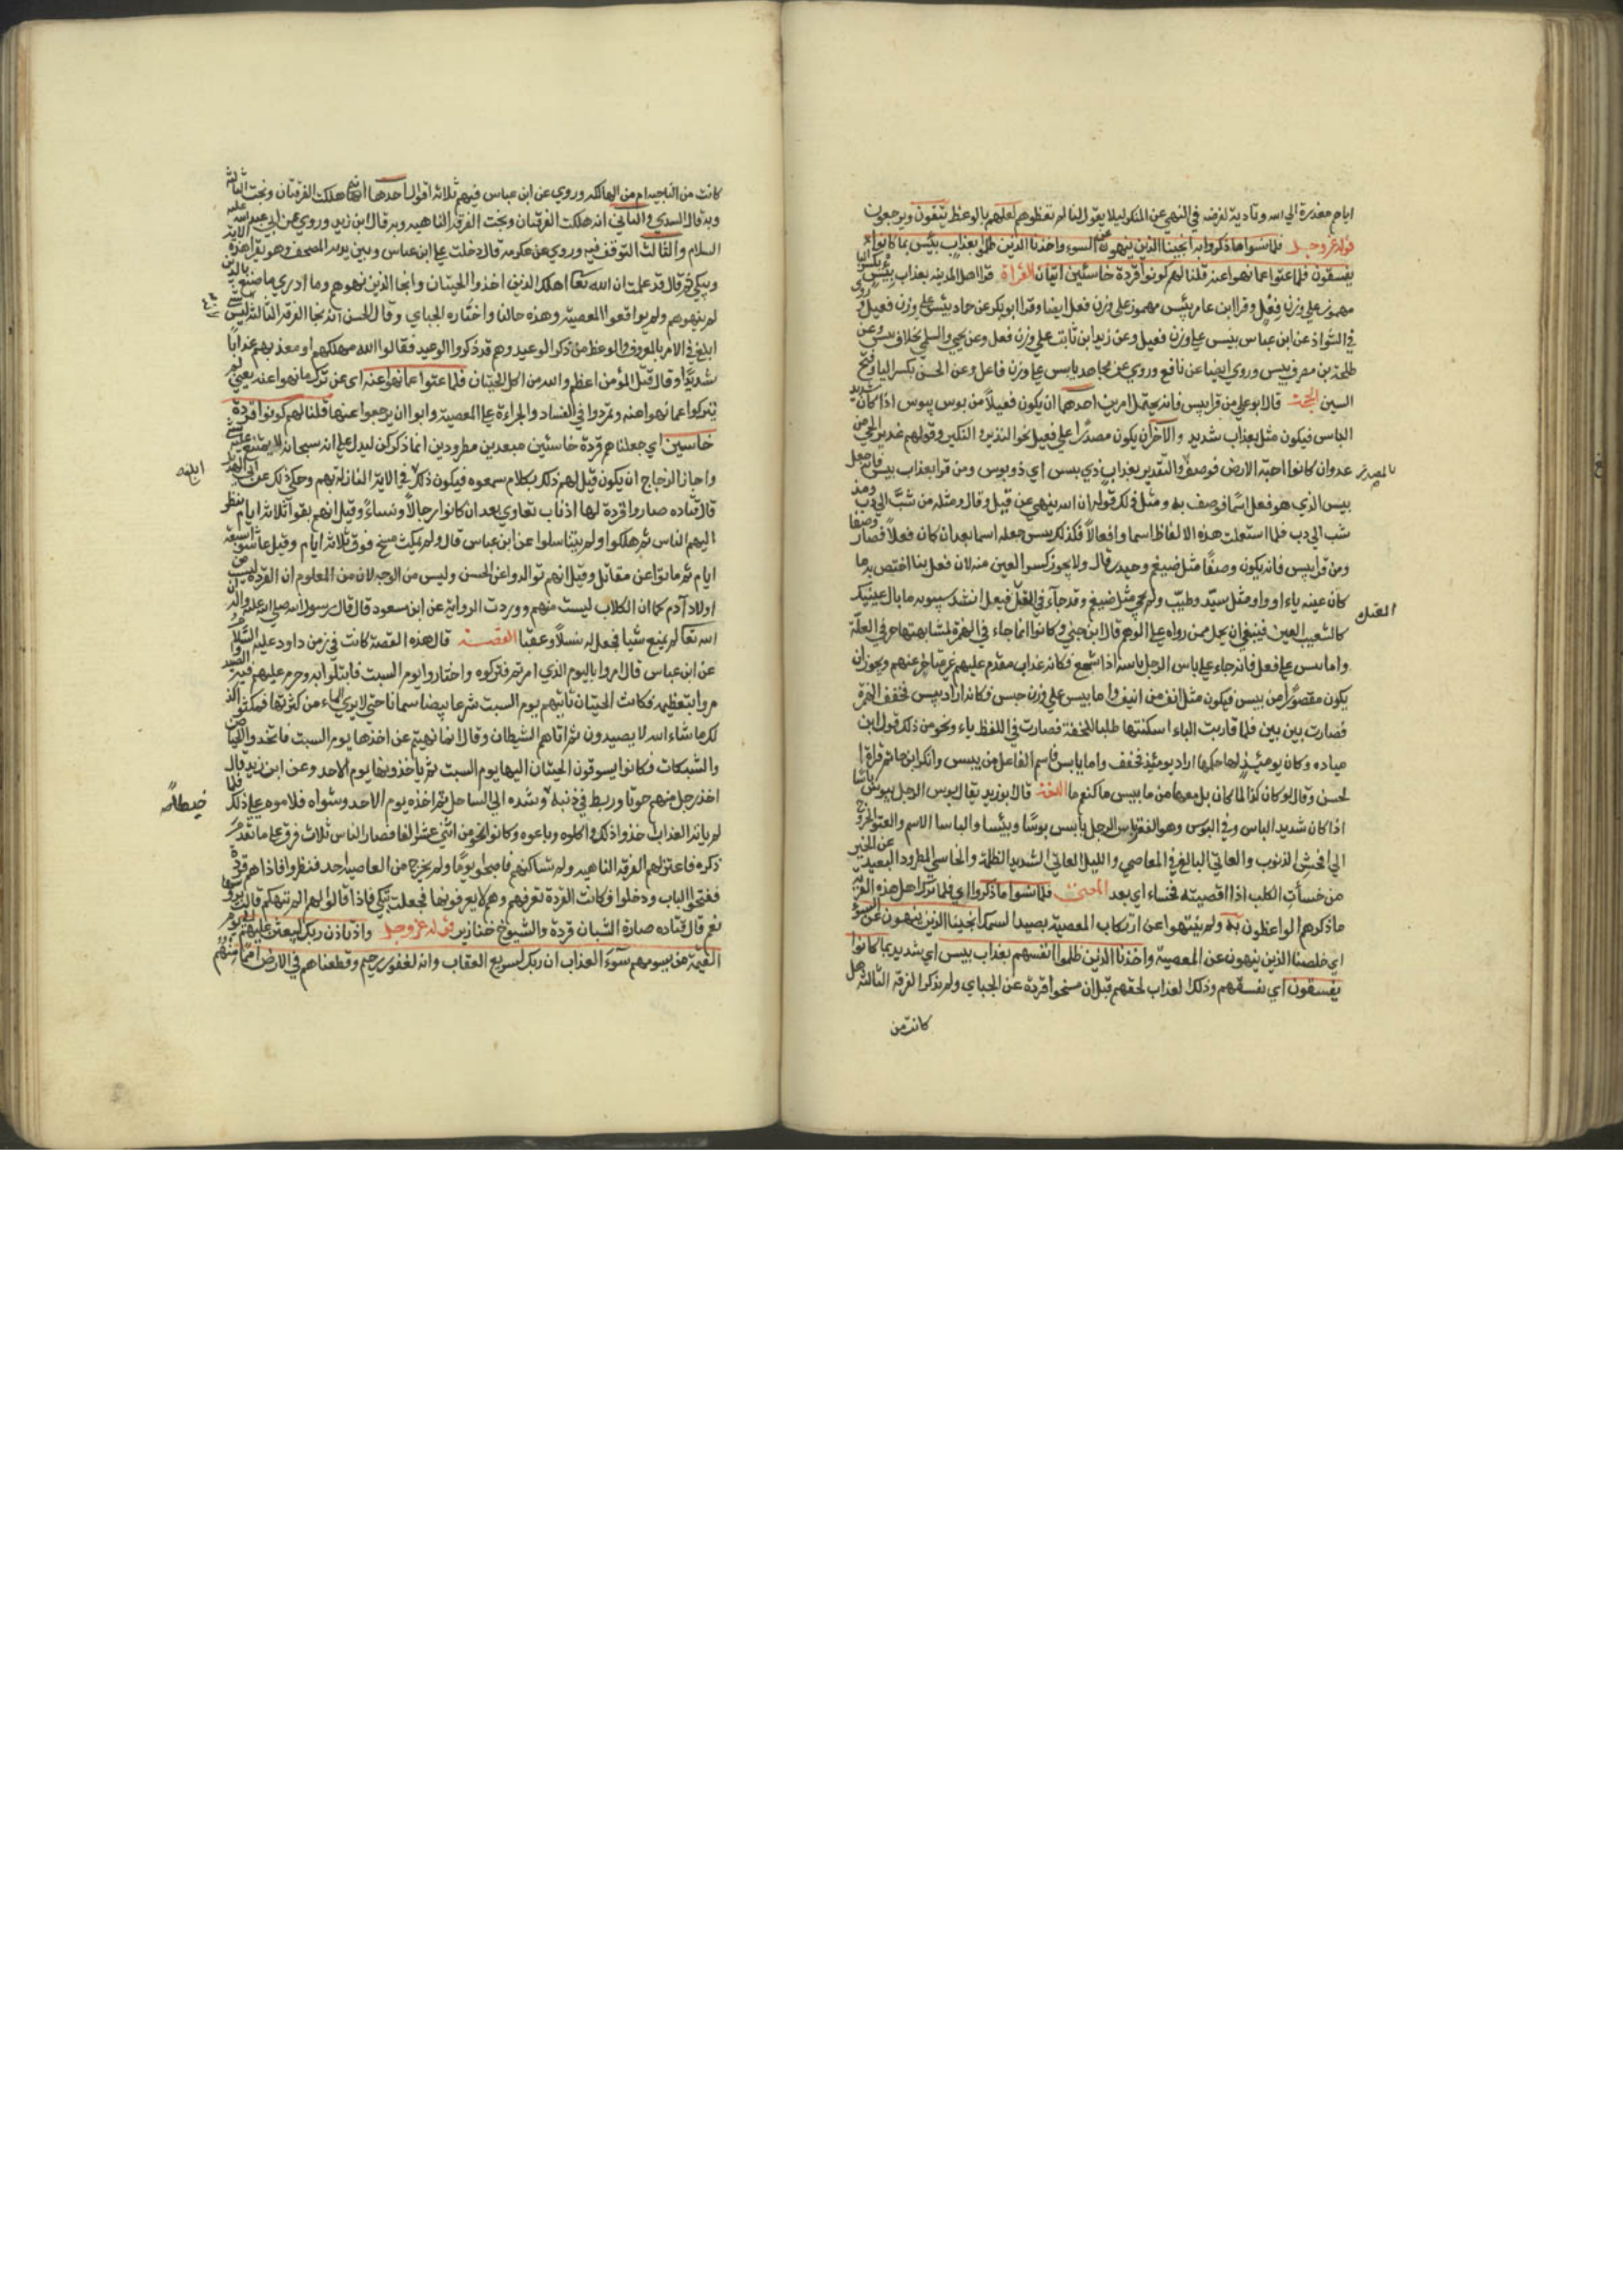 ايام معذرة الى الله وتادية لفرضه في النهي عن المنكر ليلا يقول لنا لم تعظوهم لعلهم بالوعظ يتقون ويرجعون
قوله عز وجل فلما نسوا ما ذكروا به انجينا الذين ينهون عن السوء واخذنا الذين ظلموا بعذاب بئيس بما كانوا
يفسقون فلما عتوا عما نهوا عنه قلنا لهم كونوا قردة خاسئين ايتان القراة قرا اهل المدينه بعذاب بيس بكسر البا
مهموز على وزن فعل وقرا ابن عامر بئس مهموز على وزن فعل ايضا وقرا ابو بكر عن حماد بيئس على وزن فيعل وروى
في الشواذ عن ابن عباس بيئس على وزن فيعل وعن زيد ابن ثابت على وزن فعل وعن يحيى والسلمي بخلاف بيس وعن
طلحة بن مصرف بيس وروي ايضا عن نافع وروي عن مجاهد بايس على وزن فاعل وعن الحسن بكسر البا وفتح
السين الحجة قال ابو علي من قرا بئيس فانه يحتمل امرين احدهما ان يكون فعيلا من بوس يبوس اذا كان شديد
الباس فيكون مثل بعذاب شديد والاخر ان يكون مصدرا على فعيل نحو النذير والنكير وقولهم عذير الحي من
عدوان كانوا حية الارض فوصف بالمصدر والتقدير بعذاب ذي بيس اي ذو بوس ومن قرا بعذاب بيس فانه جعل
بيس الذي هو فعل اسما فوصف به ومثل ذلك قوله ان الله ينهى عن قيل وقال ومثله من شب الى دب ومذ
شب الى دب فلما استعملت هذه الالفاظ اسما وافعالا فكذلك بيس جعله اسما بعد ان كان فعلا فصار وصفا
ومن قرا بيئس فانه يكون وصفا مثل ضيغم وحيدر قال ولا يجوز كسر العين منه لان فيعل بنا اختص به ما
كان عينه ياء او واو مثل سيد وطيب ولم يجئ مثل ضيغم وقد جاء في المعتل فيعل انشد سيبويه ما بال عينيك
كالشعيب العين فينبغي ان يحمل من رواه على الوهم قال ابن جني وكانوا انما جاء في الهمزة لمشابهتها حرفي العلة
واما بيس على فعل فانه جاء على باس الرجل باسة اذا شجع فكانه عذاب مقدم عليهم غير متاخر عنهم ويجوز ان
يكون مقصورا من بئيس فيكون مثل انف من انيف واما بيس على وزن جبس فكانه اراد بيس فخفف الهمزة
فصارت بين بين فلما قاربت الياء اسكنتها طلبا للخفة فصارت في اللفظ ياء ونحو من ذلك قول ابن
مياده وكان يوميذ لها حكمها اراد يومئذ فخفف واما بايس فاسم الفاعل من بيس وانكر ابو حاتم قراة
لحسن وقال لو كان كذا لما كان بد معها من ما بيس ما كنعم ما اللغة قال ابو زيد يقال بوس الرجل يبوس باسا
اذا كان شديد الباس وفي البوس وهو الفقر بايس الرجل يبأس بوسا وبيئسا والباسا الاسم والعتو الخروج
الى افحش الذنوب والعاتي البالغ في المعاصي والليل العاتي الشديد الظلمة والخاسي المطرود البعيد عن الخير
من خسأت الكلب اذا اقصيته فخساء اي بعد المعنى فلما نسوا ما ذكروا اي فلما ترك اهل هذه القرية
ما ذكرهم الواعظون به ولم ينتهوا عن ارتكاب المعصية بصيد السمك انجينا الذين ينهون عن السوء
اي خلصنا الذين ينهون عن المعصية واخذنا الذين ظلموا انفسهم بعذاب بيس اي شديد بما كانوا
يفسقون اي بفسقهم وذلك العذاب لحقهم قبل ان مسخوا قردة عن الجباي ولم يذكر الفرقة الثالثة هل
كانت من
كانت من الناجية ام من الهالكه وروي عن ابن عباس فيهم ثلاثة اقوال احدها انه هلكت الفرقتان ونجت الثالثة
وبه قال السدي والثاني انه هلكت الفرقتان ونجت الفرقة الناهيه وبه قال ابن زيد وروي عن ابي عبد الله عليه
السلام والثالث التوقف فيه وروي عن عكرمه قال دخلت على ابن عباس وبين يديه المصحف وهو يقرا هذه الاية
ويبكي ثم قال قد علمت ان الله تعالى اهلك الذين اخذوا الحيتان وانجا الذين نهوهم وما ادري ما صنع بالذين
لم ينهوهم ولم يواقعوا المعصية وهذه حالنا واختاره الجباي وقال الحسن انه نجا الفرقة الثالثة لانه ليس شي
ابلغ في الامر بالمعروف والوعظ من ذكر الوعيد وهم قد ذكروا الوعيد فقالوا الله مهلكهم او معذبهم عذابا
شديدا وقال قتل المؤمن اعظم والله من اكل الحيتان فلما عتوا عما نهوا عنه اي عن ترك ما نهوا عنه يعني لم
يتركوا عما نهوا عنه وتمردوا في الفساد والجراءة على المعصية وابوا ان يرجعوا عنها قلنا لهم كونوا قردة
خاسئين اي جعلناهم قردة خاسئين مبعدين مطرودين انما ذكر كن ليدل على انه سبحانه لا يمتنع عليه شي
واجاز الزجاج ان يكون قيل لهم ذلك بكلام سمعوه فيكون ذلك ابلغ في الاية النازلة بهم وحكي ذلك عن ابي الهذيل
قال قتاده صاروا قردة لها اذناب تعاوي بعد ان كانوا رجالا ونساء وقيل انهم بقوا ثلاثة ايام ينظر
اليهم الناس ثم هلكوا ولم يتناسلوا عن ابن عباس قال ولم يمكث مسخ فوق ثلاثة ايام وقيل عاشوا سبعة
ايام ثم ماتوا عن مقاتل وقيل انهم توالدوا عن الحسن وليس من الوجه لان من المعلوم ان القردة ليست من
اولاد آدم كما ان الكلاب ليست منهم ووردت الرواية عن ابن مسعود قال قال رسول الله صلى الله عليه واله ان
الله تعالى لم يمسخ شيا فجعل له نسلا وعقبا القصة قال هذه القصة كانت في زمن داود عليه السلام
عن ابن عباس قال امروا باليوم الذي امرتم فتركوه واختاروا يوم السبت فابتلوا به وحرم عليهم فيه الصيد
مروا بتعظيمه فكانت الحيتان تاتيهم يوم السبت شرعا بيضا سمانا حتى لا يرى الماء من كثرتها فمكثوا كذ
لك ما شاء الله لا يصيدون ثم اتاهم الشيطان وقال انما نهيتم عن اخذها يوم السبت فاتخذوا الحياض
والشبكات فكانوا يسوقون الحيتان اليها يوم السبت ثم ياخذونها يوم الاحد وعن ابن زيد قال
اخذ رجل منهم حوتا وربط في ذنبه خيطا وشده الى الساحل ثم اخذه يوم الاحد وشواه فلاموه على ذلك فلما
لم ياته العذاب اخذوا ذلك واكلوه وباعوه وكانوا نحو من اثنى عشر الفا فصار الناس ثلاث فرق على ما تقدم
ذكره فاعتزلهم الفرقة الناهيه ولم تساكنهم فاصبحوا يوما ولم يخرج من العاصية احد فنظروا فاذا هم قردة
ففتحوا الباب ودخلوا فكانت القردة تعرفهم وهم لا يعرفونها فجعلت تبكي فاذا قالوا لهم الم ننهكم قالت برؤسها
نعم قال قتاده صارة الشبان قردة والشيوخ خنازير قوله عز وجل واذ تاذن ربك ليبعثن عليهم الى يوم
القيمة من يسومهم سوء العذاب ان ربك لسريع العقاب وانه لغفور رحيم وقطعناهم في الارض امما منهم